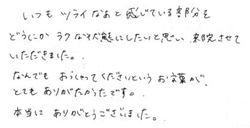 いつもツライなあと感じている部分を
どうにかラクな状態にしたいと思い、来院させて
いただきました。
なんでもおっしゃってくださいというお言葉が、
とてもありがたかったです。
本当にありがとうございました。